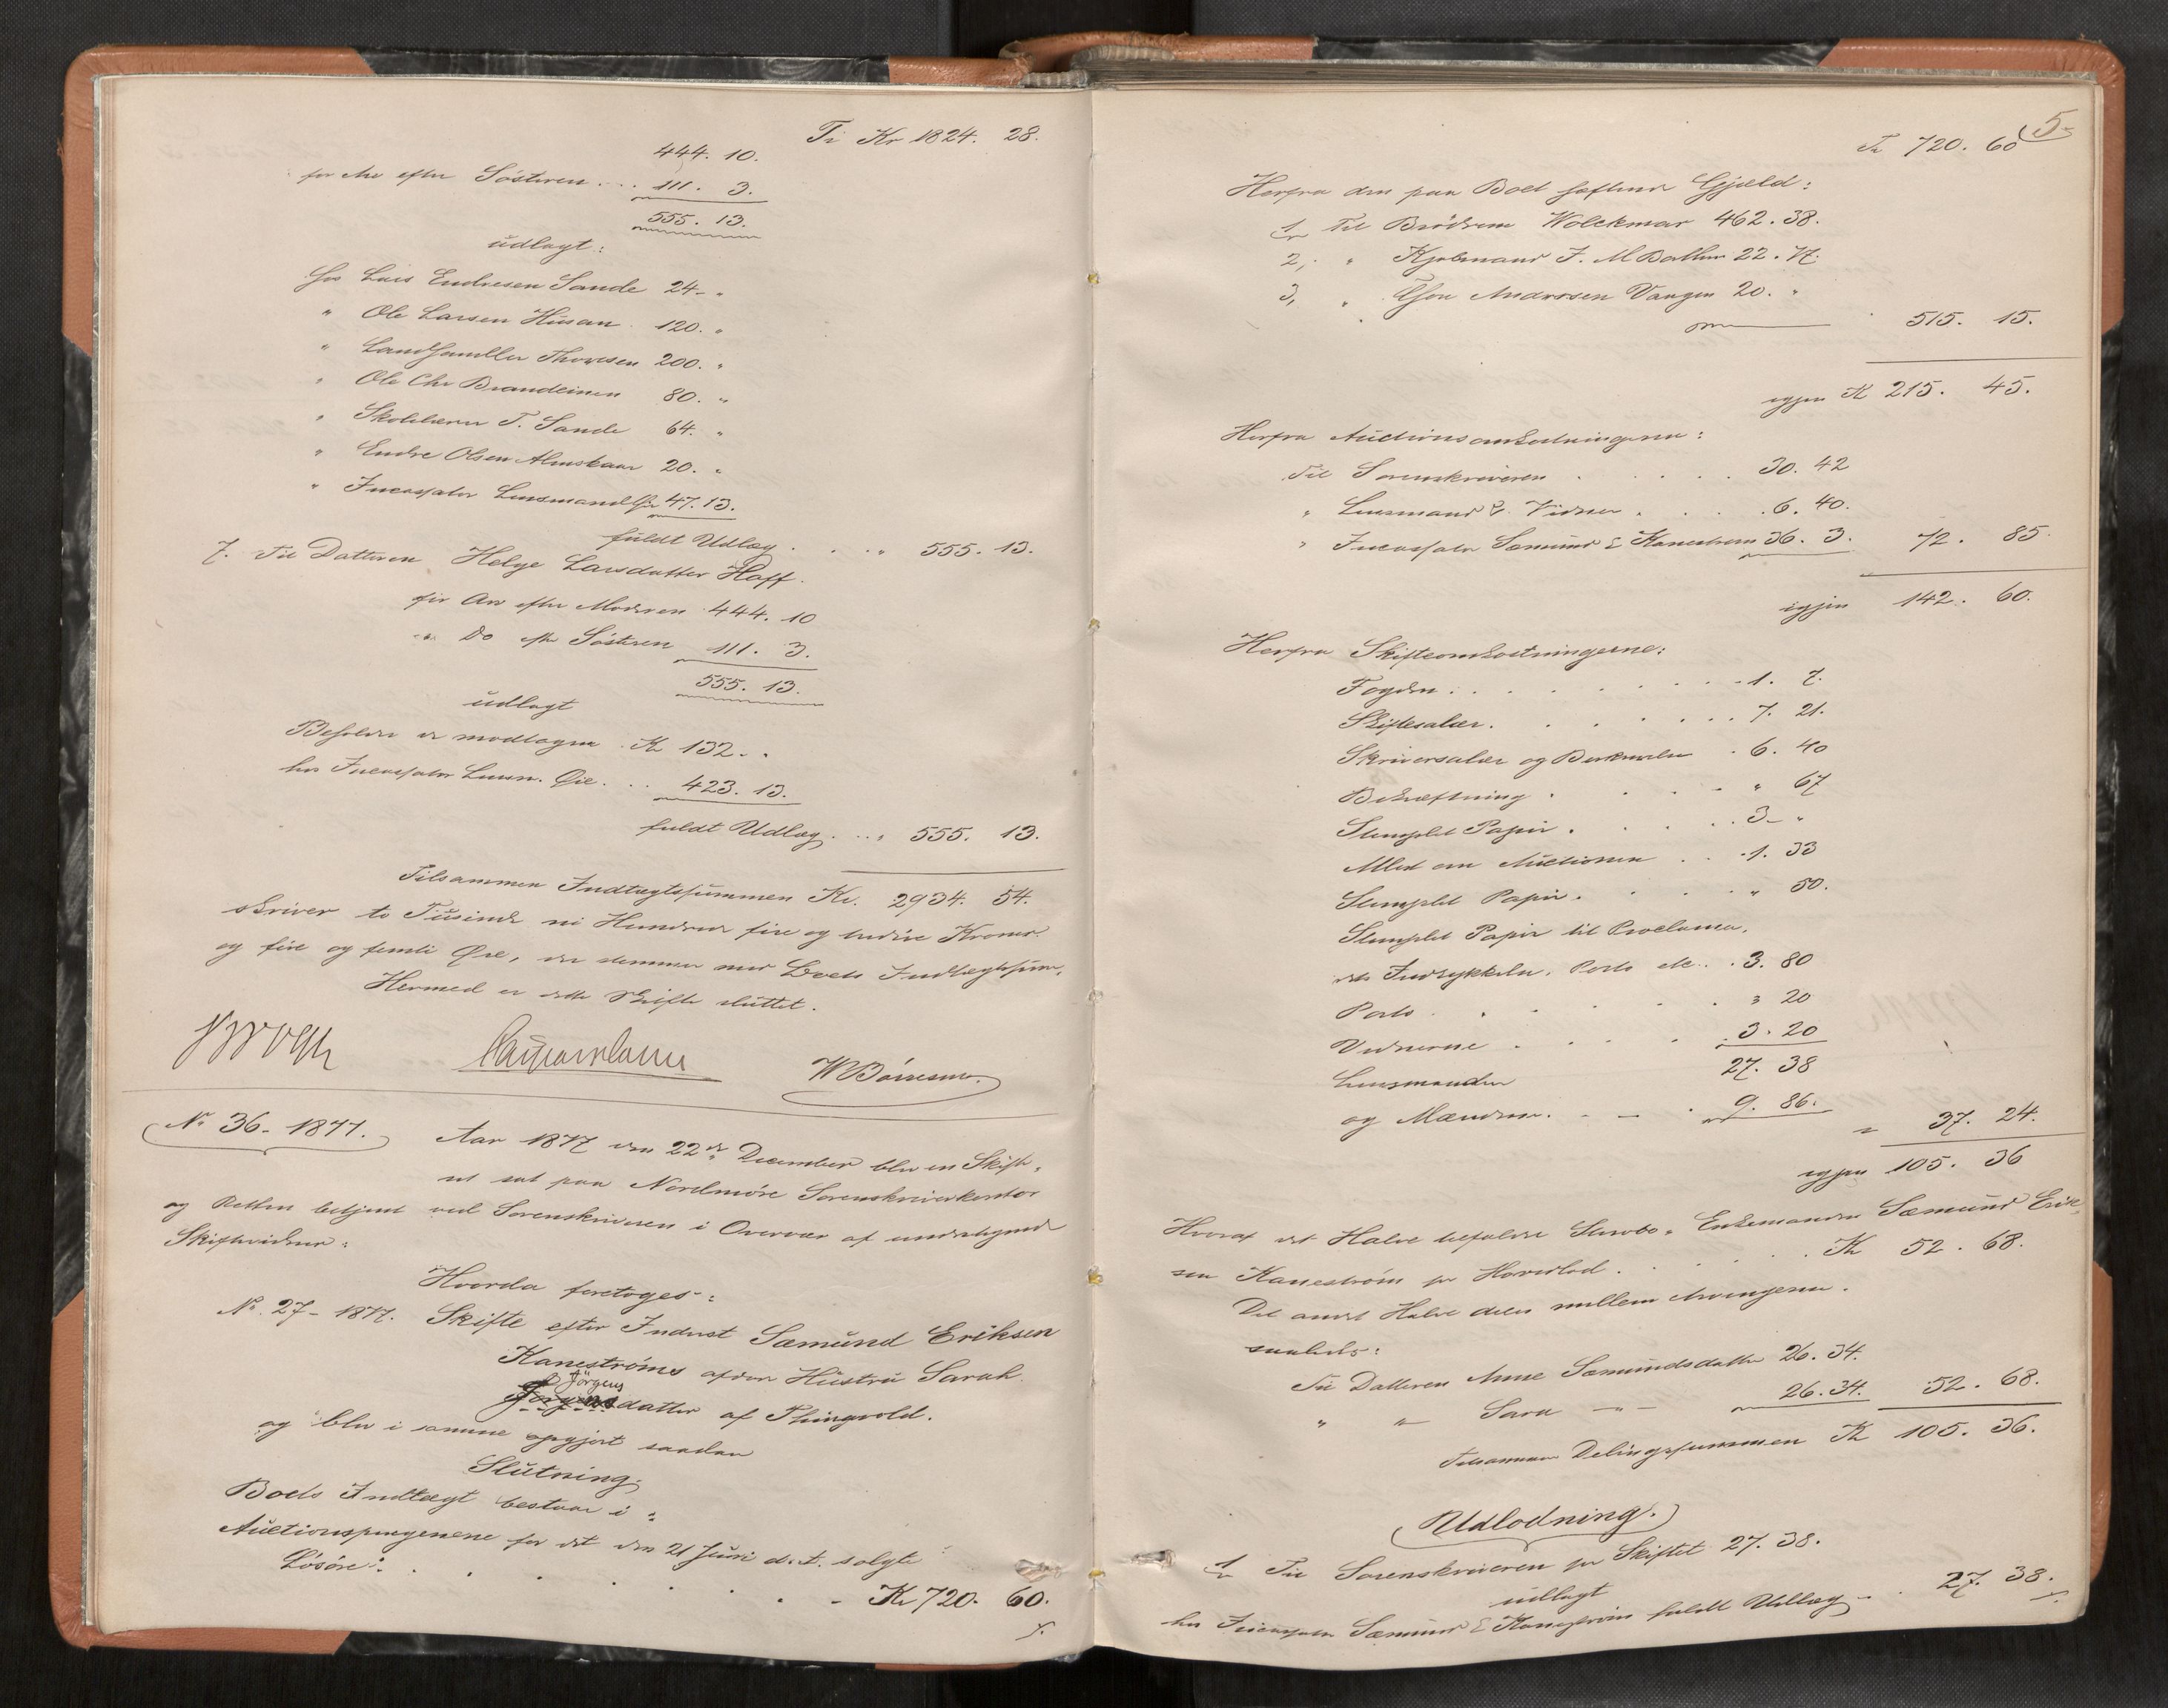 Ti Kr 1824. 28.
444. 10.
for Arv efter Søsteren ... 111. 3.
555. 13.
udlagt:
hos Lars Endresen Sande 24 - "
" Ole Larsen Husan 120. "
" Landhandler Thoresen 200. "
" Ole Chr Brandeinen 80. "
" Skolelærer T. Sande 64. "
" Endre Olsen Almskaar 20. "
" Incassator Lensmand Øie 47. 13.
fuldt Udlæg . . . " 555. 13.
7. Til Datteren Helge Larsdatter Hoff.
for Arv efter Moderen 444. 10
" Do efter Søsteren 111. 3.
555. 13.
udlagt
Beholder er modtagen Kr 132. "
hos Incassator Lensm. Øie. . . 423. 13.
fuldt Udlæg . . . " 555. 13.
Tilsammen Indtægtssummen Kr. 2934. 54.
skriver to Tusinde ni Hundrede fire og tredive Kroner
og fire og femti Øre, der stemmer med Boets Indtægtssum.
Hermed er dette Skifte sluttet.
W Børresen
No 36 - 1877. Aar 1877 den 22de December blev en Skifte-
ret sat paa Nordmøre Sorenskriverkontor
og Retten betjent ved Sorenskriveren i Overvær af undertegnede
Skiftevidner:
Hvorda foretoges:
No. 27 - 1877. Skifte efter Inderst Sæmund Eriksen
Kanestrøms afdøde Hustru Sarah
Jørgens
Jørgensdatter af Thingvold.
og blev i samme opgjort saadan
Slutning.
Boets Indtægt bestaar i:
Auctionspengenene for det den 21 Juni d. A. solgte
Løsøre: . . . . . . . - Kr 720. 60.
5
Tr 720. 60
Herfra den paa Boet heftende Gjæld:
1 Til Brødrene Wolckmar 462. 38.
2, " Kjøbmand J. M Dathe 22. 77.
3, " Ehon Andersen Vangen 20. "
515. 15.
igjen Kr 215. 45.
Herfra Auctionsomkostningerne:
Til Sorenskriveren . . . . 30. 42
" Lensmand & Vidner . . . . 6. 40.
" Incassator Sæmund E Kanestrøm 36. 3. 72. 85.
igjen 142. 60.
Herfra Skifteomkostningerne:
Fogden . . . . . . . 1. 7.
Skiftesalær. . . . . . . 7. 21.
Skriversalær og Beskrivelse . 6. 40
Bekræftning . . . . " 67
Stemplet Papir . . . . 3 - "
Meld om Auctionen . . 1. 33
Stemplet Papir . . . . " 50.
Stemplet Papir til Proclama,
dets Indrykkelse, Porto etc. . 3. 80
Porto . . . . . . " 20
Vidnerne . . . . 3. 20
27. 38
Lensmanden
og Mændene. . - - . 9. 86. " 37. 24.
igjen 105. 36
Hvoraf det Halve tilfalder Stervbo- Enkemanden Sæmund Erik-
sen Kanestrøm pr Hovedlod . . . . Kr 52. 68.
Det andet Halve deles mellem Arvingerne.
saaledes:
Til Datteren Anne Sæmundsdatter 26. 34.
" " Sara - " - 26. 34. 52. 68.
Tilsammen Delingssummen Kr 105. 36.
Udlodning.
1 Til Sorenskriveren pr Skiftet 27. 38.
udlagt
hos Incassator Sæmund E Kanestrøm fuldt Udlæg . . 27. 38.